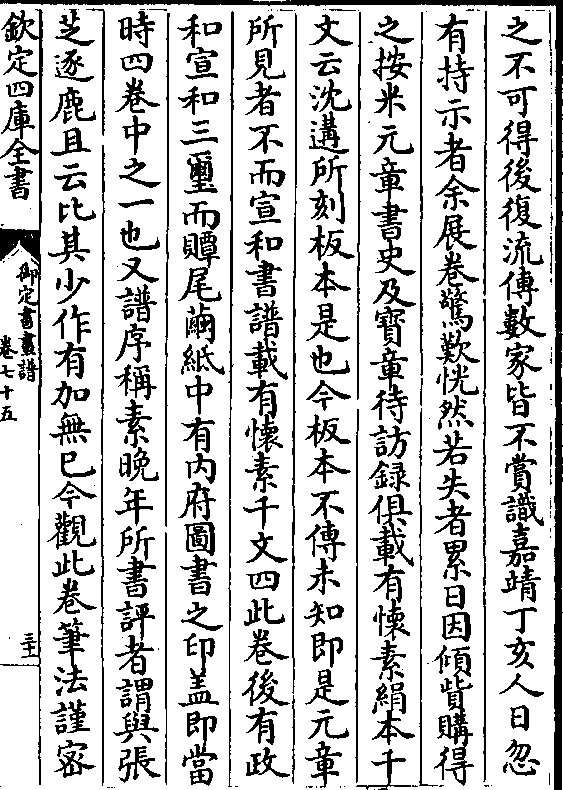 之不可得後復流傳數家皆不賞識嘉靖丁亥人日忽
有持示者余展卷驚歎恍然若失者累日因傾貲購得
之按米元章書史及寳章待訪録俱載有懷素絹本千
文云沈遘所刻板本是也今板本不傳未知即是元章
所見者不而宣和書譜載有懷素千文四此卷後有政
和宣和三璽而贉尾繭紙中有内府圖書之印盖即當
時四卷中之一也又譜序稱素晩年所書評者謂與張
芝逐鹿且云比其少作有加無已今觀此卷筆法謹宻
欽定四庫全書
御定書畫譜
卷七十五